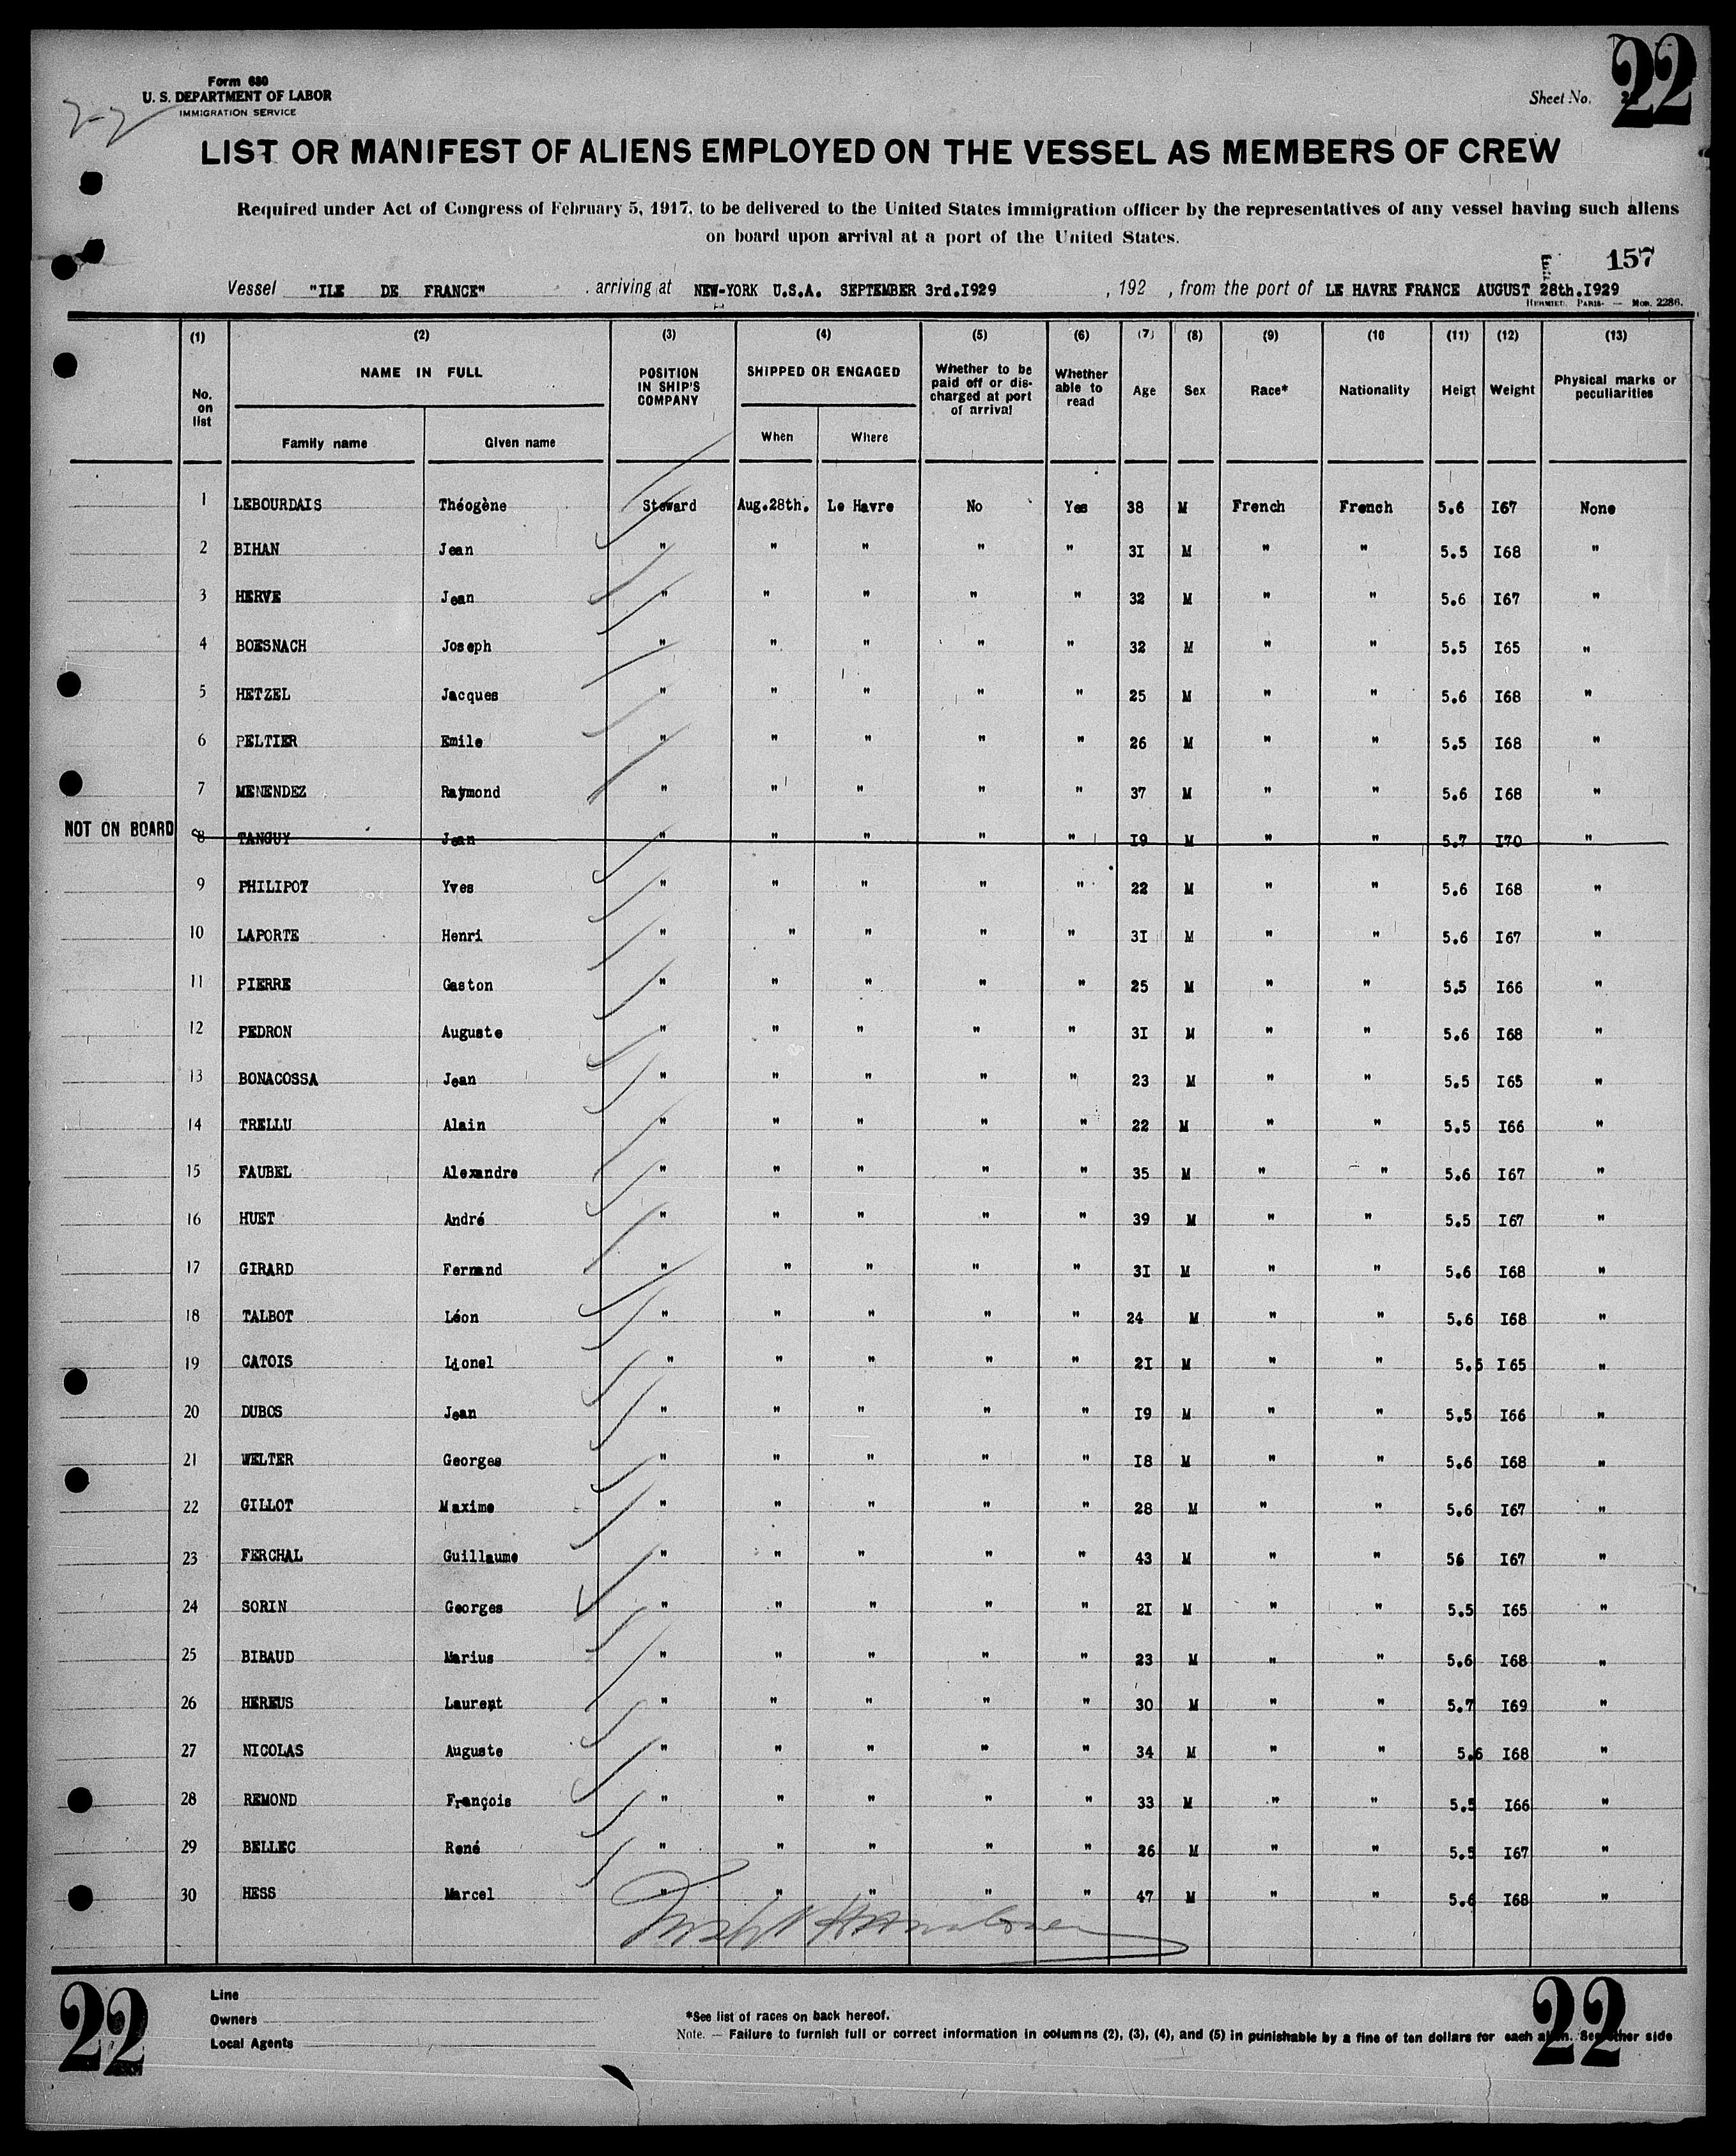 22
Form 680
U. S. DEPARTMENT OF LABOR
IMMIGRATION SERVICE
Sheet No.
22
LIST OR MANIFEST OF ALIENS EMPLOYED ON THE VESSEL AS MEMBERS OF CREW
Required under Act of Congress of February 5, 1917, to be delivered to the United States immigration officer by the representatives of any vessel having such aliens
on board upon arrival at a port of the United States.
157
Vessel "ILE DE FRANCE" , arriving at NEW-YORK U.S.A. SEPTEMBER 3rd.I929 , 192 , from the port of LE HAVRE FRANCE AUGUST 28th.I929
HERMIEU, PARIS- — Mod. 2286.
(1) (2) (3) (4) (5) (6) (7) (8) (9) (10 (11) (12) (13)
No. on list NAME IN FULL Family name Given name POSITION IN SHIP'S COMPANY SHIPPED OR ENGAGED When Where Whether to be paid off or dis- charged at port of arrival Whether able to read Age Sex Race* Nationality Heigt Weight Physical marks or peculiarities
1 LEBOURDAIS Théogène Steward Aug.28th. Le Havre No Yes 38 M French French 5.6 I67 None
2 BIHAN Jean " " " " " 3I M " " 5.5 I68 "
3 HERVE Jean " " " " " 32 M " " 5.6 I67 "
4 BOESNACH Joseph " " " " " 32 M " " 5.5 I65 "
5 HETZEL Jacques " " " " " 25 M " " 5.6 I68 "
6 PELTIER Emile " " " " " 26 M " " 5.5 I68 "
7 MENENDEZ Raymond " " " " " 37 M " " 5.6 I68 "
NOT ON BOARD 8 TANGUY Jean " " " " " I9 M " " 5.7 I70 "
9 PHILIPOT Yves " " " " " 22 M " " 5.6 I68 "
10 LAPORTE Henri " " " " " 3I M " " 5.6 I67 "
11 PIERRE Gaston " " " " " 25 M " " 5.5 I66 "
12 PEDRON Auguste " " " " " 3I M " " 5.6 I68 "
13 BONACOSSA Jean " " " " " 23 M " " 5.5 I65 "
14 TRELLU Alain " " " " " 22 M " " 5.5 I66 "
15 FAUBEL Alexandre " " " " " 35 M " " 5.6 I67 "
16 HUET André " " " " " 39 M " " 5.5 I67 "
17 GIRARD Fernand " " " " " 3I M " " 5.6 I68 "
18 TALBOT Léon " " " " " 24 M " " 5.6 I68 "
19 CATOIS Lionel " " " " " 2I M " " 5.5 I65 "
20 DUBOS Jean " " " " " I9 M " " 5.5 I66 "
21 WELTER Georges " " " " " I8 M " " 5.6 I68 "
22 GILLOT Maxime " " " " " 28 M " " 5.6 I67 "
23 FERCHAL Guillaume " " " " " 43 M " " 56 I67 "
24 SORIN Georges " " " " " 2I M " " 5.5 I65 "
25 BIBAUD Marius " " " " " 23 M " " 5.6 I68 "
26 HEREUS Laurent " " " " " 30 M " " 5.7 I69 "
27 NICOLAS Auguste " " " " " 34 M " " 5.6 I68 "
28 REMOND François " " " " " 33 M " " 5.5 I66 "
29 BELLEC René " " " " " 26 M " " 5.5 I67 "
30 HESS Marcel " " " " " 47 M " " 5.6 I68 "
22
Line
Owners
Local Agents
*See list of races on back hereof.
Note. — Failure to furnish full or correct information in columns (2), (3), (4), and (5) in punishable by a fine of ten dollars for each alien. See other side
22